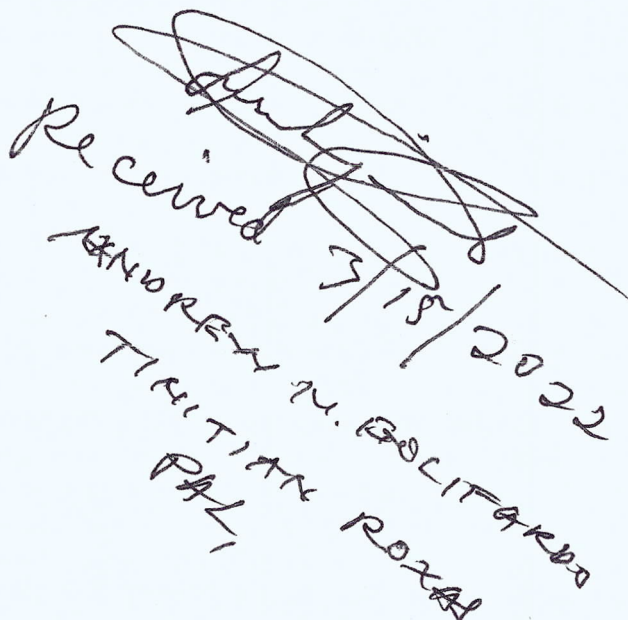 Received 3/15/2022
ANDREW N. BOLIFARDO
TINITIAN ROXAS
PAL,